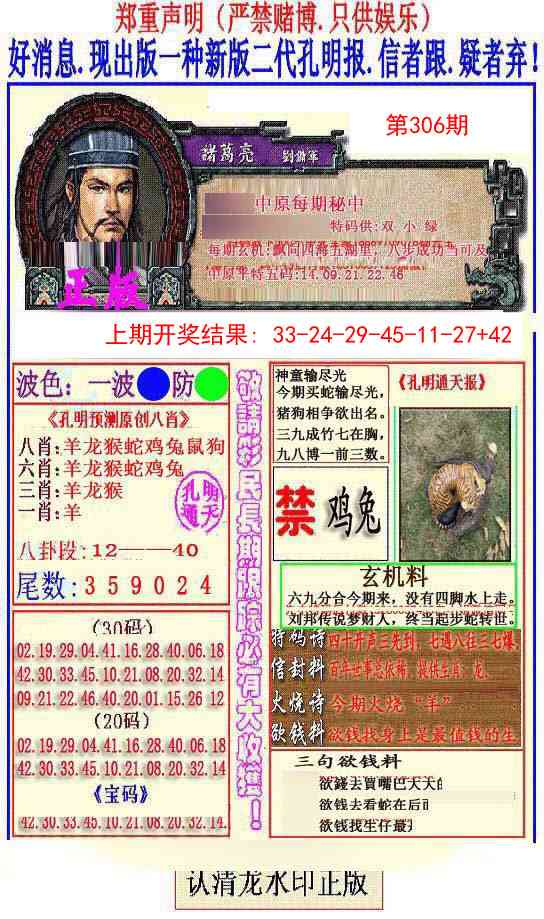 郑重声明（严禁赌博.只供娱乐）
好消息.现出版一种新版二代孔明报.信者跟.疑者弃!
第306期
諸葛亮 劉備軍
中原每期秘中
特码供:双 小 绿
每期玄机:飘间四海五湖里，八步成功当可及
中原平特五码:14.09.21.22.46
正版
上期开奖结果: 33-24-29-45-11-27+42
波色: 一波 防
《孔明预测原创八肖》
八肖:羊龙猴蛇鸡兔鼠狗
六肖:羊龙猴蛇鸡兔
三肖:羊龙猴
一肖:羊
孔明
通天
八卦段:12——40
尾数:359024
敬請彩民長期跟踪必有大收獲！
神童输尽光
今期买蛇输尽光，
猪狗相争欲出名。
三九成竹七在胸，
九八博一前三数。
《孔明通天报》
禁 鸡兔
玄机料
六九分合今期来，没有四脚水上走。
刘邦传说梦财人，终当起步蛇转世。
(30码)
02.19.29.04.41.16.28.40.06.18
42.30.33.45.10.21.08.20.32.14
09.21.22.46.40.20.01.15.26.12
(20码)
02.19.29.04.41.16.28.40.06.18
42.30.33.45.10.21.08.20.32.14
《宝码》
42.30.33.45.10.21.08.20.32.14.
特码诗 四十开声三先到，七遇八往三七爆
信封料 百年世事总依稀，提供生肖：龙、
火烧诗 今期火烧“羊”
欲钱料 欲钱找身上是最值钱的生
三句欲钱料
欲錢去買嘴巴大大的
欲钱去看蛇在后
欲钱找生仔最
认清龙水印正版